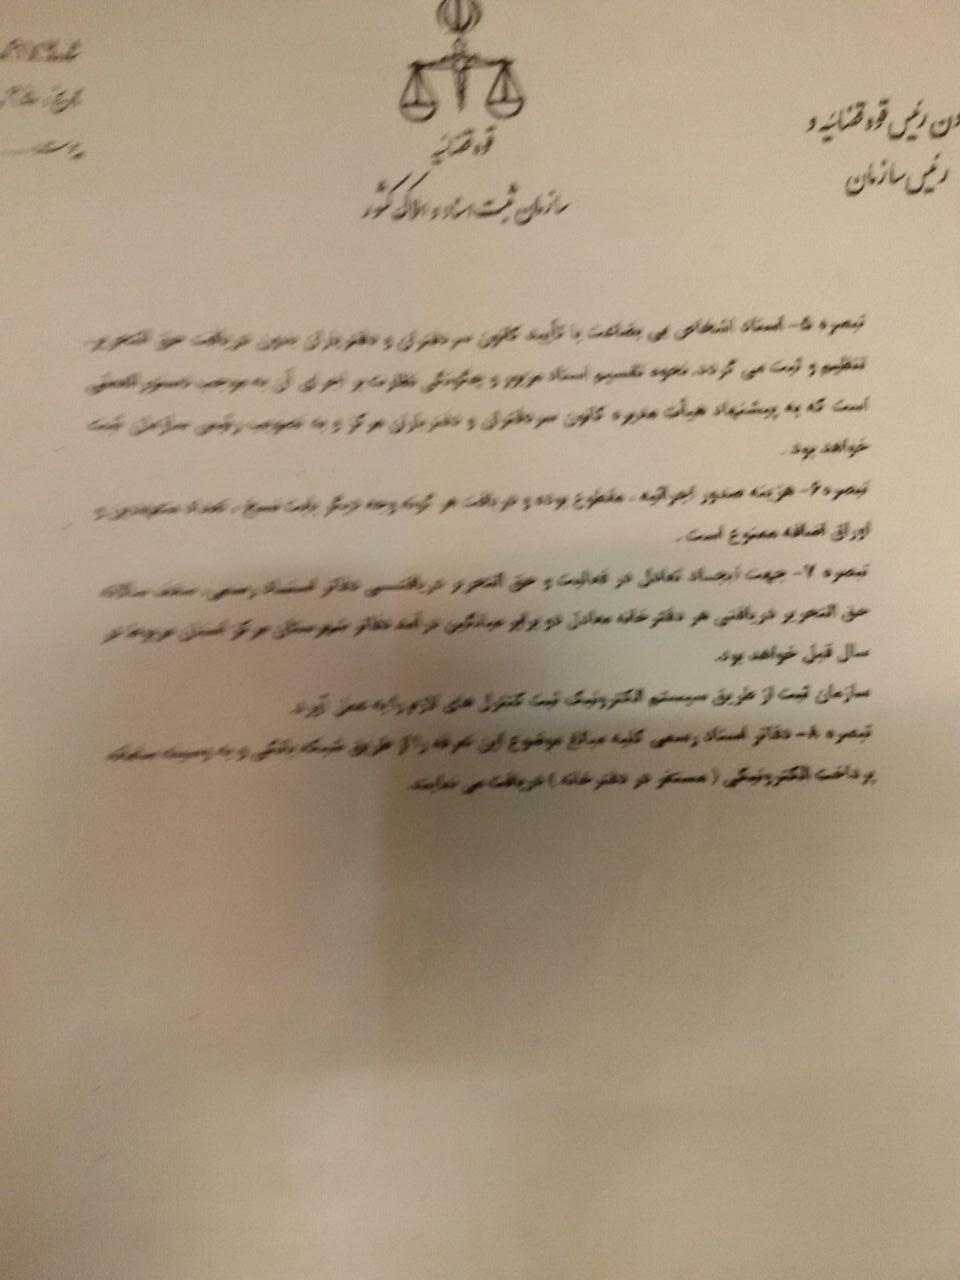 ون رئیس قوه قضائیه و
رئیس سازمان
قوه قضائیه
سازمان ثبت اسناد و املاک کشور
تبصره ۵- اسناد اشخاص بی بضاعت با تأیید کانون سردفتران و دفتریاران بدون دریافت حق التحریر
تنظیم و ثبت می گردد. نحوه تقسیم اسناد مزبور و چگونگی نظارت بر اجرای آن به موجب دستورالعملی
است که به پیشنهاد هیأت مدیره کانون سردفتران و دفتریاران مرکز و به تصویب رئیس سازمان ثبت
خواهد بود.
تبصره ۶- هزینه صدور اجرائیه، مقطوع بوده و دریافت هر گونه وجه دیگر بابت نسخ، تعداد متعهدین و
اوراق اضافه ممنوع است.
تبصره ۷- جهت ایجاد تعادل در فعالیت و حق التحریر دریافتی دفاتر اسناد رسمی، سقف سالانه
حق التحریر دریافتی هر دفترخانه معادل دو برابر میانگین درآمد دفاتر شهرستان مرکز استان مربوط در
سال قبل خواهد بود.
سازمان ثبت از طریق سیستم الکترونیک ثبت کنترل های لازم را به عمل آورد.
تبصره ۸- دفاتر اسناد رسمی کلیه مبالغ موضوع این تعرفه را از طریق شبکه بانکی و به وسیله سامانه
پرداخت الکترونیکی (مستقر در دفترخانه) دریافت می نمایند.